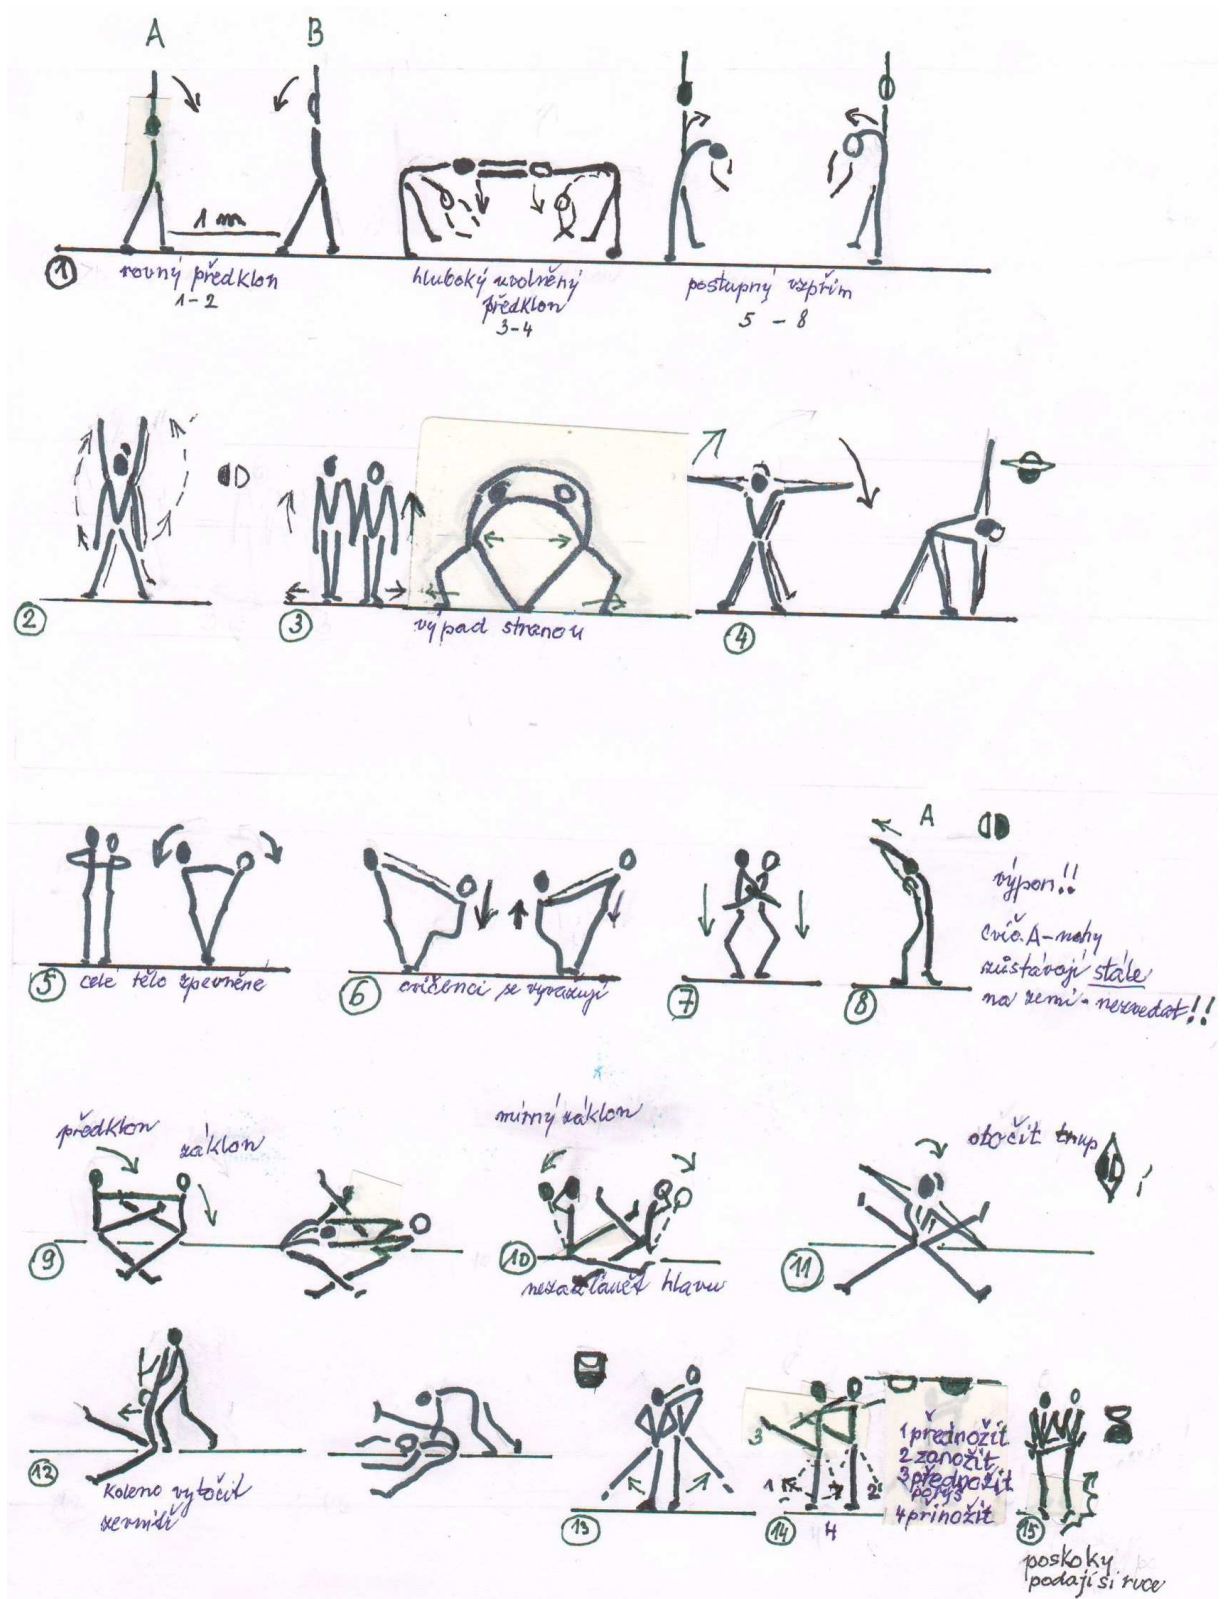 A
B
1 m
1
rovný předklon
1-2
hluboký uvolněný
předklon
3-4
postupný vzpřim
5 - 8
2
3
výpad stranou
4
5
celé tělo zpevněné
6
cvičenci se vyvažují
7
8
A
výpon!!
cvič. A-nohy
zůstávají stále
na zemi - nezvedat!!
předklon
záklon
9
mírný záklon
10
nezaklánět hlavu
otočit trup
11
12
koleno vytočit
zevnitř
13
14
3
1
2
4
1 přednožit
2 zanožit
3 přednožit
povýš
4 přinožit
15
poskoky
podají si ruce